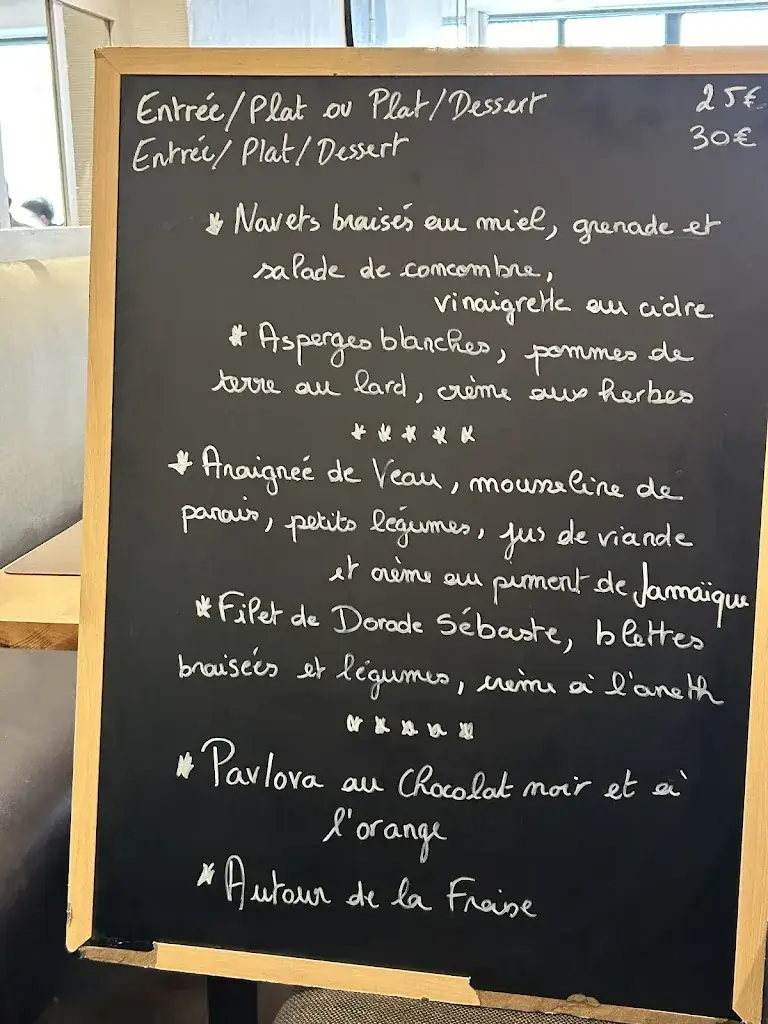 Entrée/Plat ou Plat/Dessert 25€
Entrée/Plat/Dessert 30€
* Navets braisés au miel, grenade et
salade de concombre,
vinaigrette au cidre
* Asperges blanches, pommes de
terre au lard, crème aux herbes
* * * * *
* Araignée de Veau, mousseline de
panais, petits légumes, jus de viande
et crème au piment de Jamaïque
* Filet de Dorade Sébaste, blettes
braisées et légumes, crème à l'aneth
* * * * *
* Pavlova au Chocolat noir et à
l'orange
* Autour de la Fraise